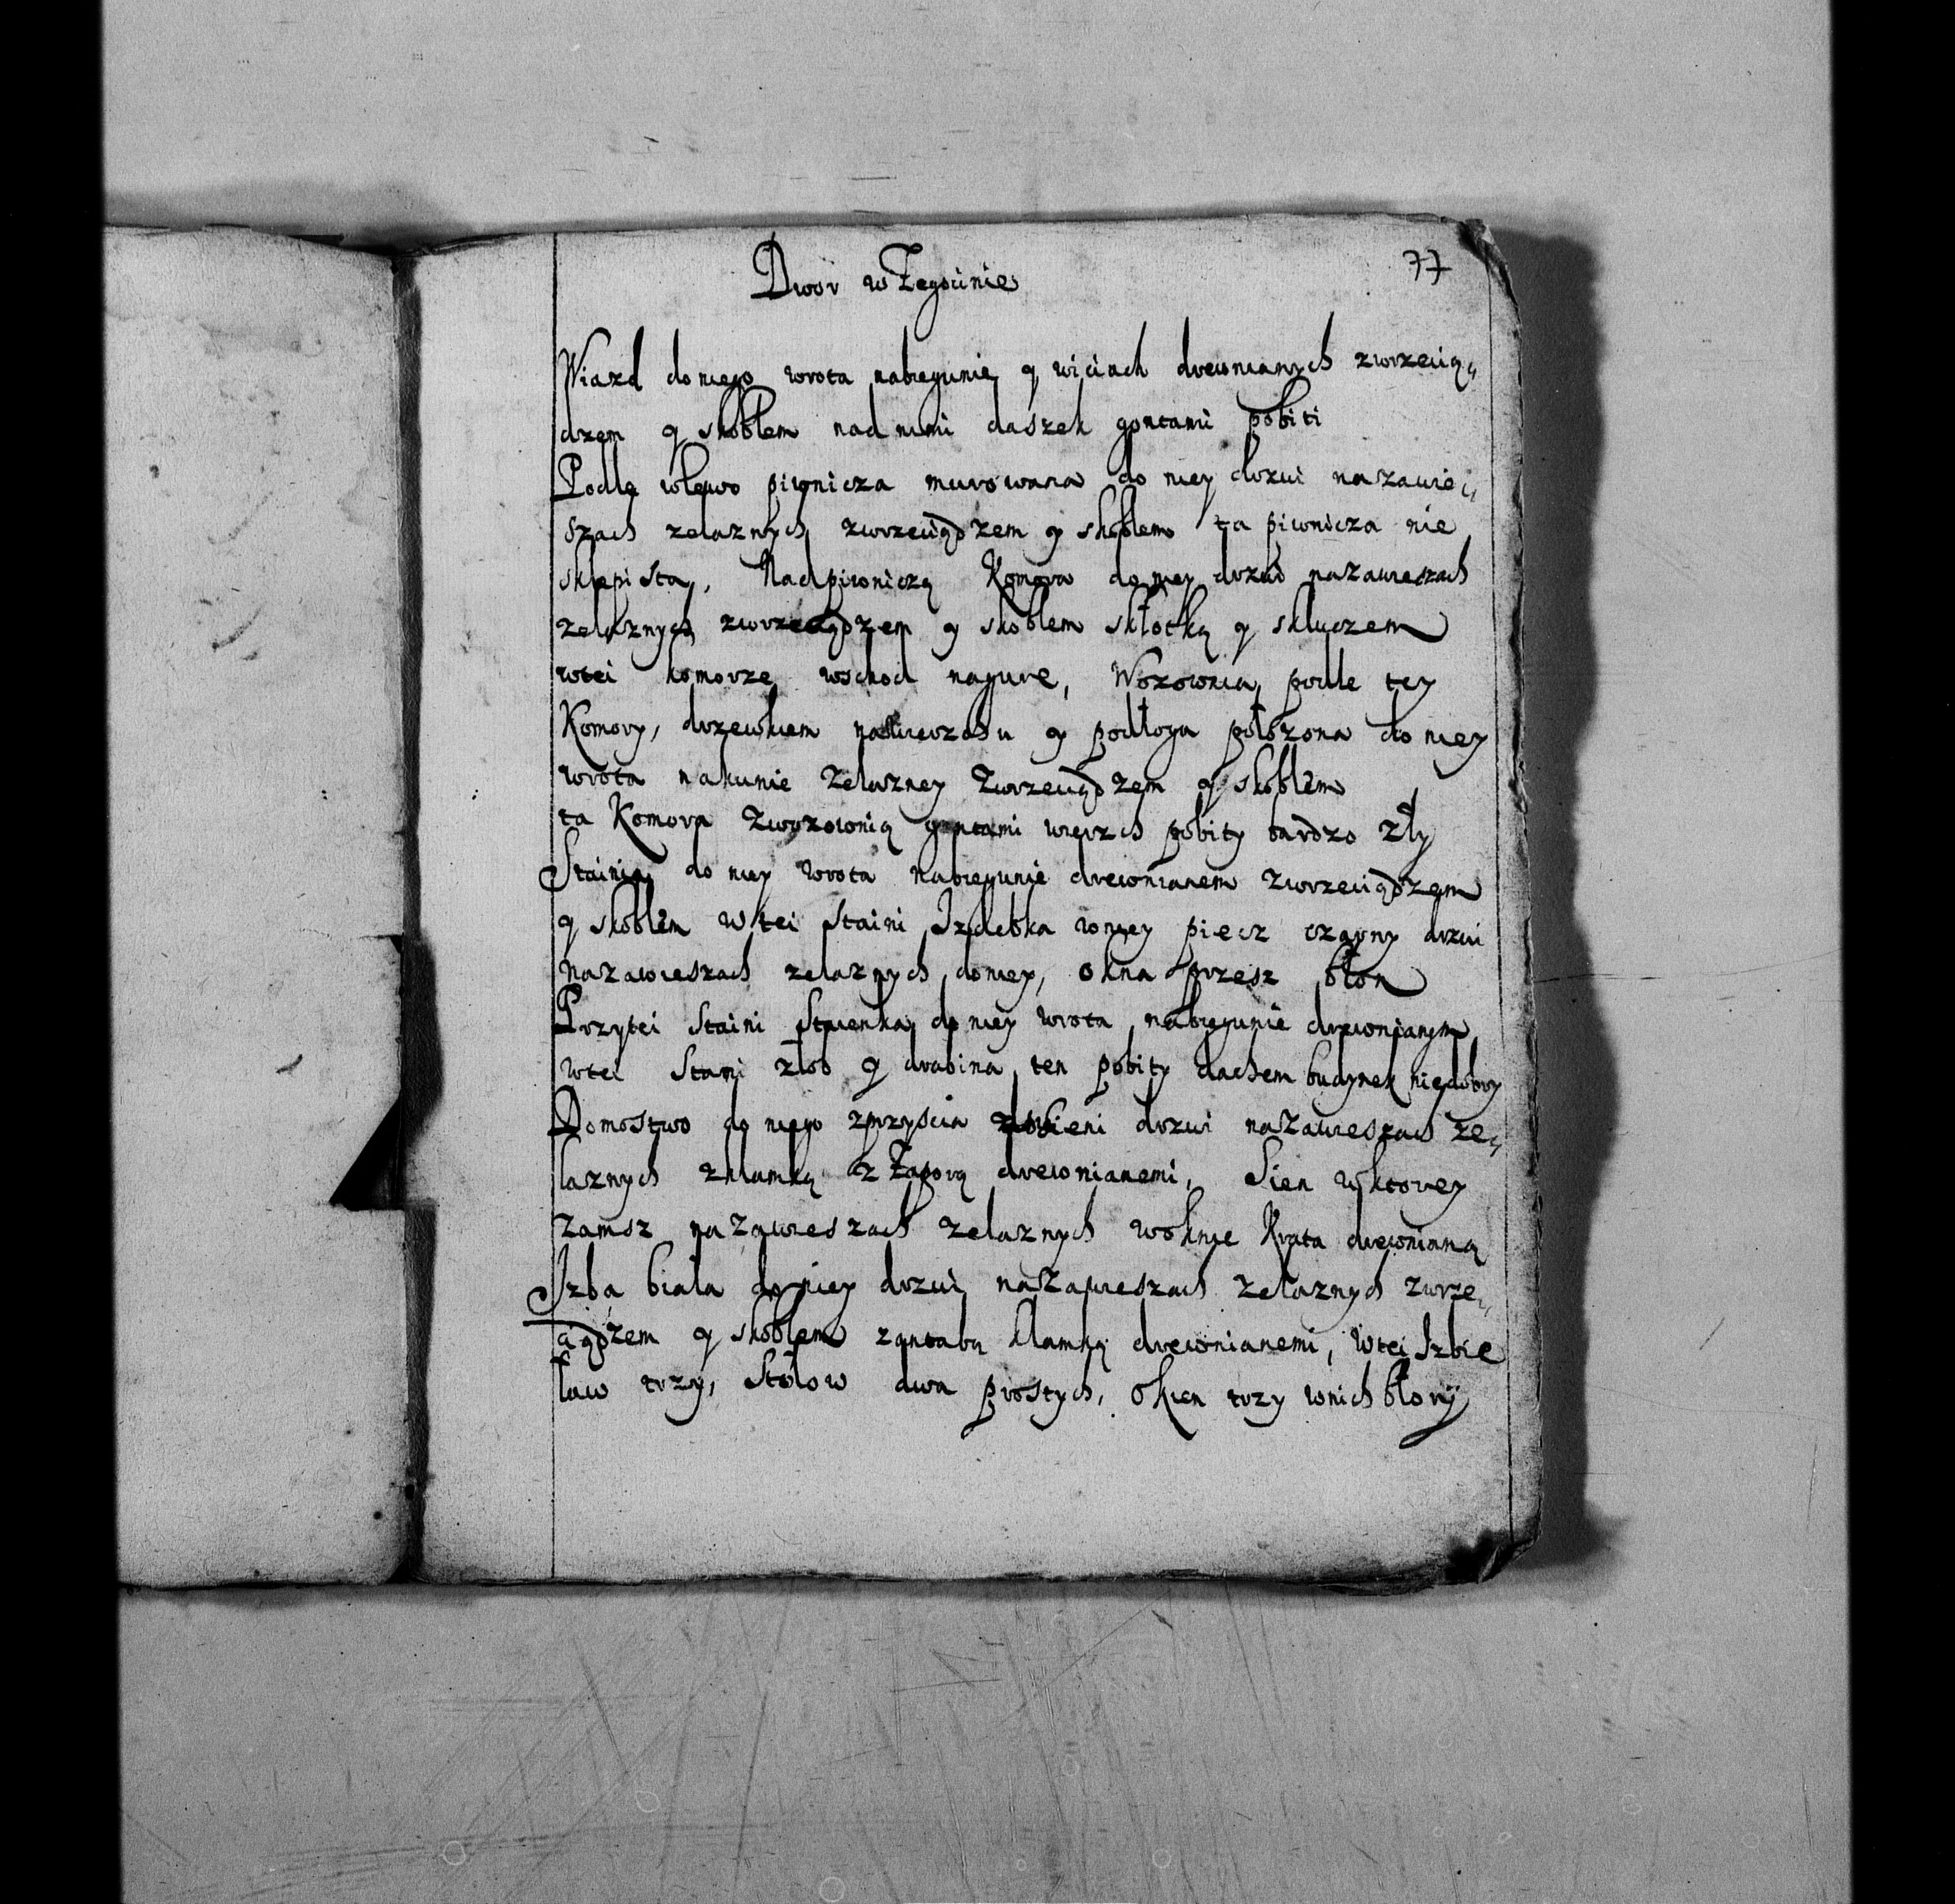 Dwor w Zegocinie
77
Wiazd do niego wrota nabiegunie y wiciach drewnianych zwrzecią,,
dzem y skoblem nad nimi daszek gontami pobiti
Podle wlewo piwnicza murowana do niey drzwi nazawie,,
szach zelaznych zwrzeciądzem y skoblem ta piwnicza nie
sklepista, Nadpiwniczą Komora do niey drzwi nazawieszach
zelaznych zwrzeciądzem y skoblem skłotką y skluczem
wtei komorze wschod nagure, Wozownia podle tey
Komory, drzewkiem nawierzchu y podłoga połozona do niey
wrota nakunie zelazney zwrzeciądzem y skoblem
ta Komora zwozownią gontami wierzch pobity bardzo zły
Stainia do niey wrota nabiegunie drewnianem zwrzeciądzem
y skoblem w tei staini Izdebka wniey piecz czarny drzwi
nazawieszach zelaznych doniey, okna przesz błon
Przytei staini do niey wrota nabiegunie drewnianym
wtei Staini złob y drabina ten pobity dachem budynek niedobry
Domostwo do niego zprzyscia drzwi nazawieszach ze,,
laznych zklamką z Zaporą drewnianemi, Sien wktorey
zamsz nazawieszach zelaznych woknie Krata drewnianą
Izba biala do niey drzwi nazawieszach zelaznych zwrze,,
ciądzem y skoblem zantabą klamką drewnianemi, Wtei Izbie
law trzy, stołow dwa prostych, okien trzy wnich błony